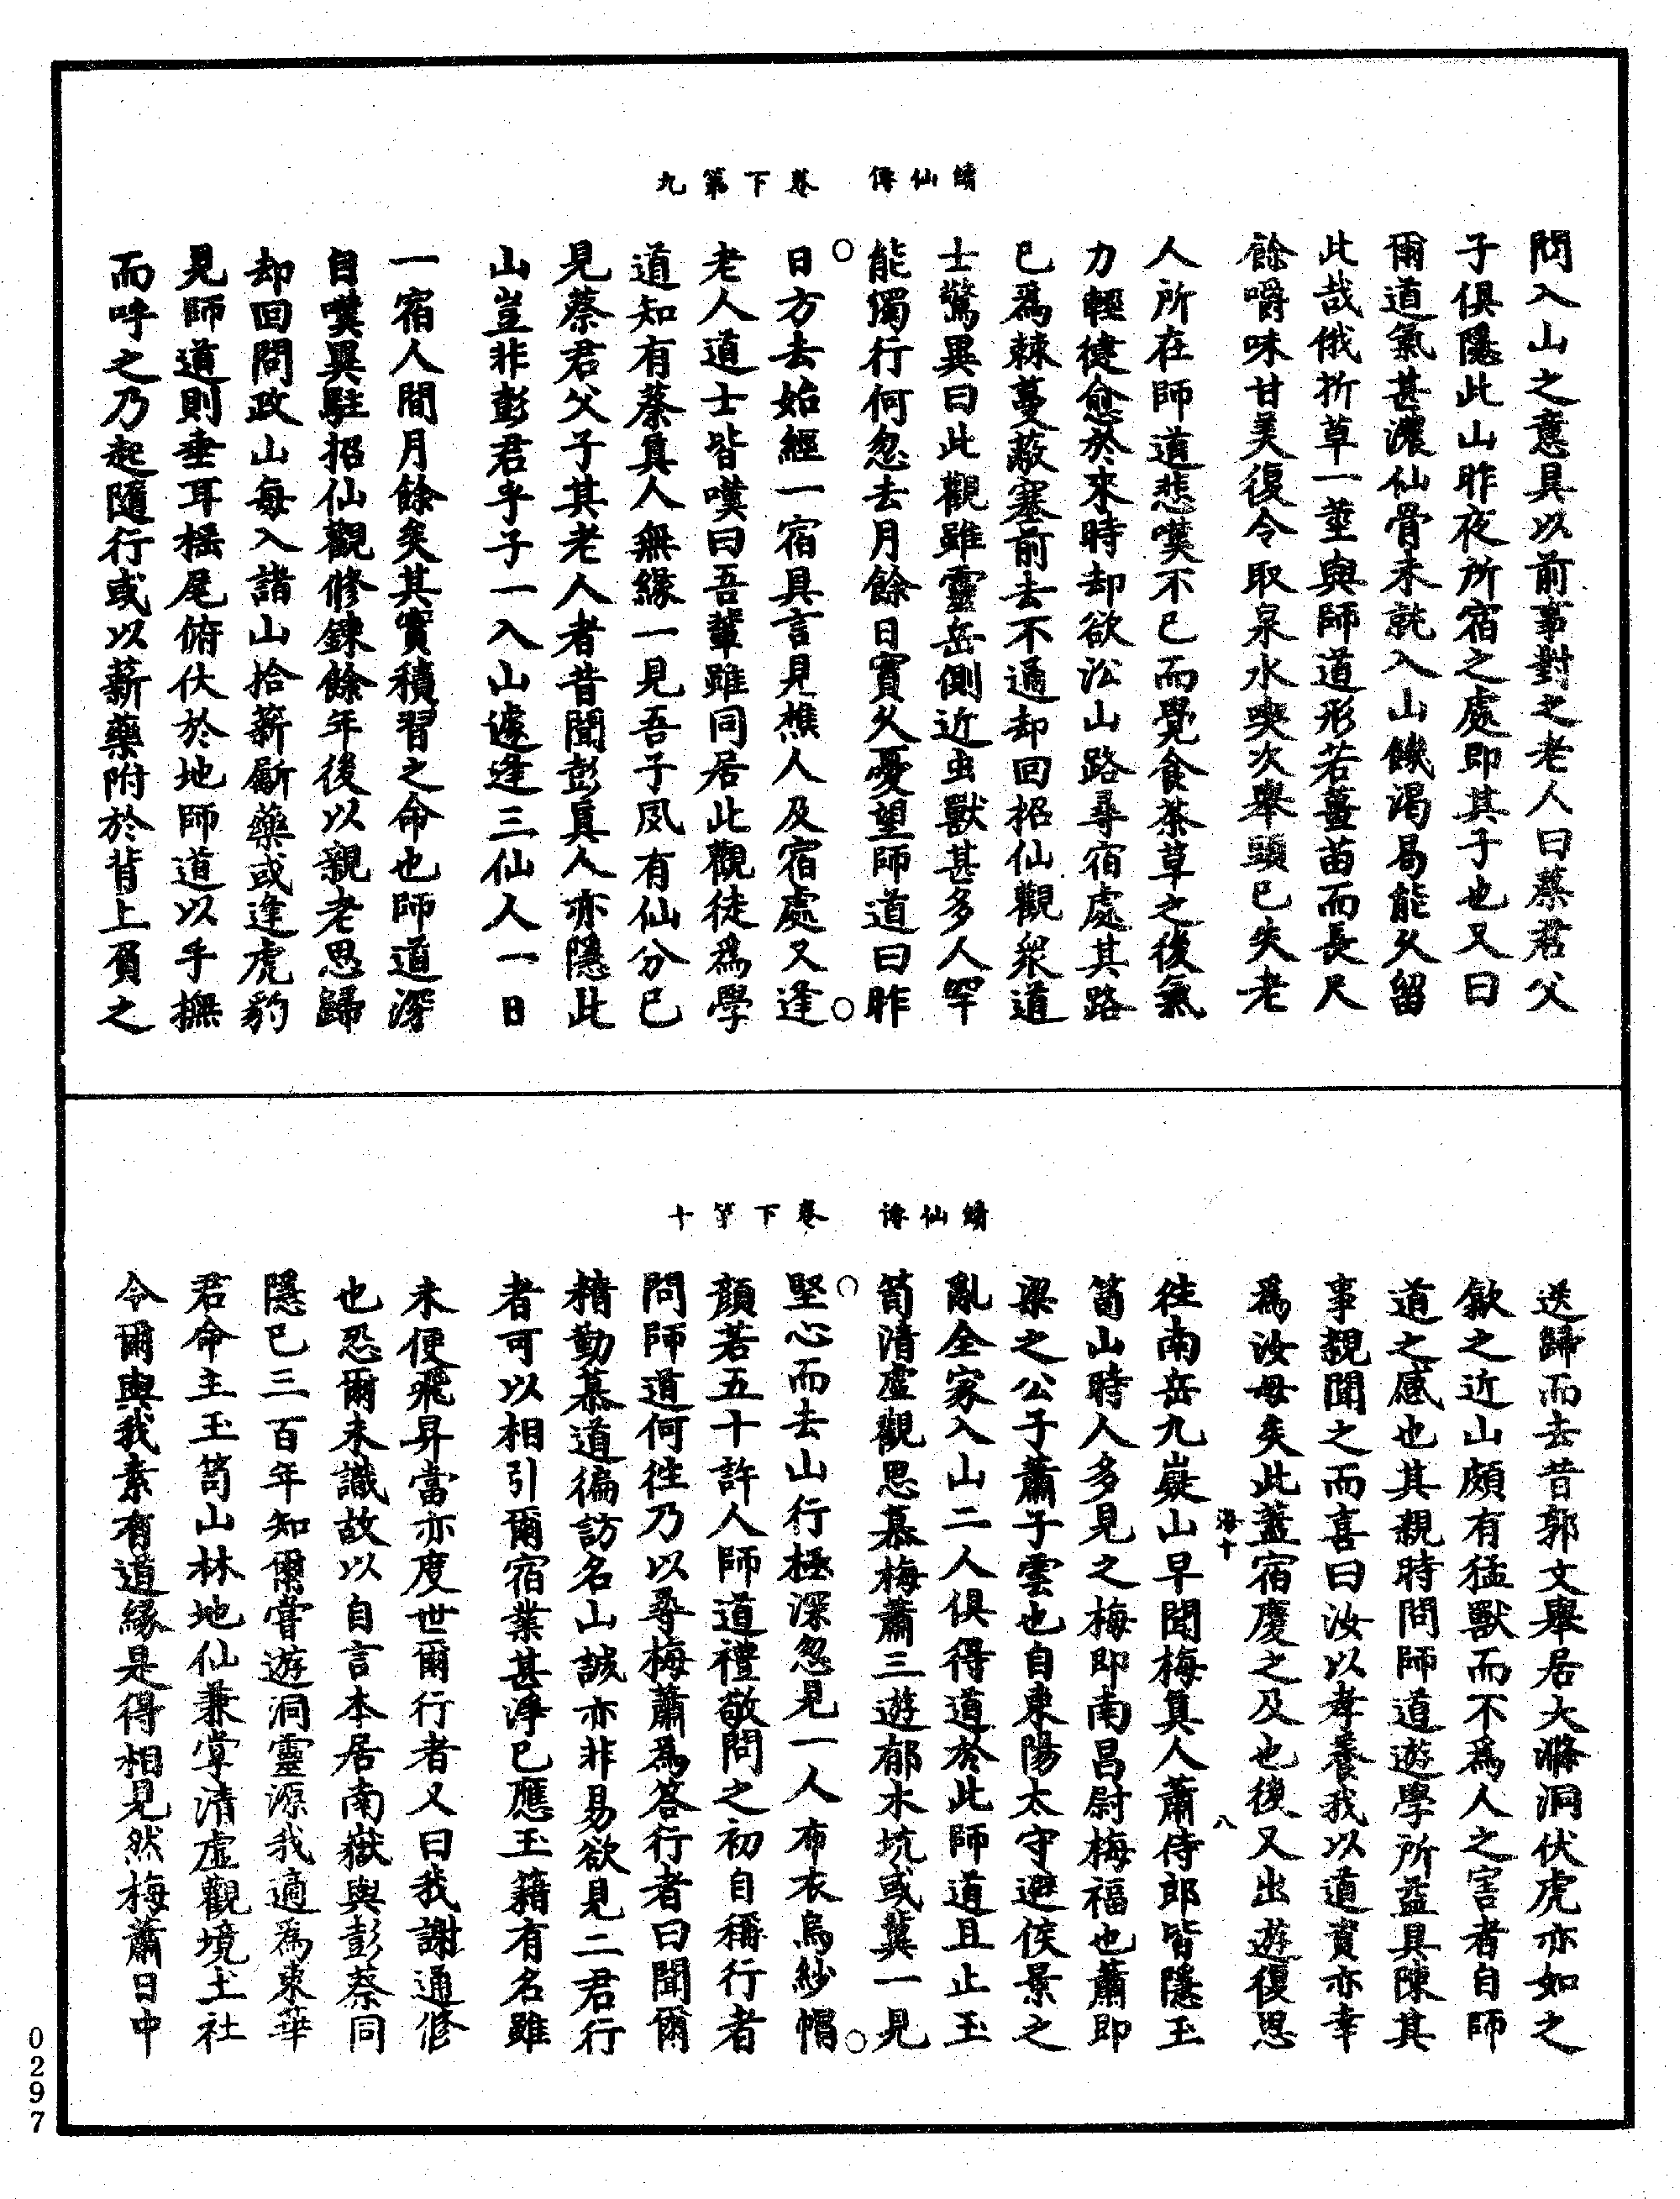 續仙傳　卷下第九
問入山之意具以前事對之老人曰蔡君父
子俱隱此山昨夜所宿之處即其子也又曰
爾道氣甚濃仙骨未就入山饑渴曷能久留
此哉俄折草一莖與師道形若薑苗而長尺
餘嚼味甘美復令取泉水喫次舉頭已失老
人所在師道悲嘆不已而覺食茶草之後氣
力輕健愈於來時却欲㳂山路尋宿處其路
已爲棘蔓蔽塞前去不通却回招仙觀衆道
士驚異曰此觀雖靈岳側近虫獸甚多人罕
能獨行何忽去月餘日實久憂望師道曰昨
日方去始經一宿具言見樵人及宿處又逢
老人道士皆嘆曰吾輩雖同居此觀徒爲學
道知有蔡真人無緣一見吾子夙有仙分已
見蔡君父子其老人者昔聞彭真人亦隱此
山豈非彭君乎子一入山遽逢三仙人一日
一宿人間月餘矣其實積習之命也師道深
自嘆異駐招仙觀修鍊餘年後以親老思歸
却回問政山每入諸山拾薪斸藥或逢虎豹
見師道則垂耳搖尾俯伏於地師道以手撫
而呼之乃起隨行或以薪藥附於背上負之
續仙傳　卷下第十
送歸而去昔郭文舉居大滌洞伏虎亦如之
歙之近山頗有猛獸而不爲人之害者自師
道之感也其親時問師道遊學所益具陳其
事親聞之而喜曰汝以孝養我以道資亦幸
爲汝母矣此蓋宿慶之及也後又出遊復思
海十　八
往南岳九嶷山早聞梅真人蕭侍郎皆隱玉
笥山時人多見之梅即南昌尉梅福也蕭即
梁之公子蕭子雲也自東陽太守避侯景之
亂全家入山二人俱得道於此師道且止玉
笥清虛觀思慕梅蕭三遊郁木坑或冀一見
堅心而去山行極深忽見一人布衣烏紗帽
顏若五十許人師道禮敬問之初自稱行者
問師道何往乃以尋梅蕭爲答行者曰聞爾
精勤慕道徧訪名山誠亦非易欲見二君行
者可以相引爾宿業甚淨已應玉籍有名雖
未便飛昇當亦度世爾行者又曰我謝通修
也恐爾未識故以自言本居南嶽與彭蔡同
隱已三百年知爾嘗遊洞靈源我適爲東華
君命主玉笥山林地仙兼掌清虛觀境土社
令爾與我素有道緣是得相見然梅蕭日中
0297